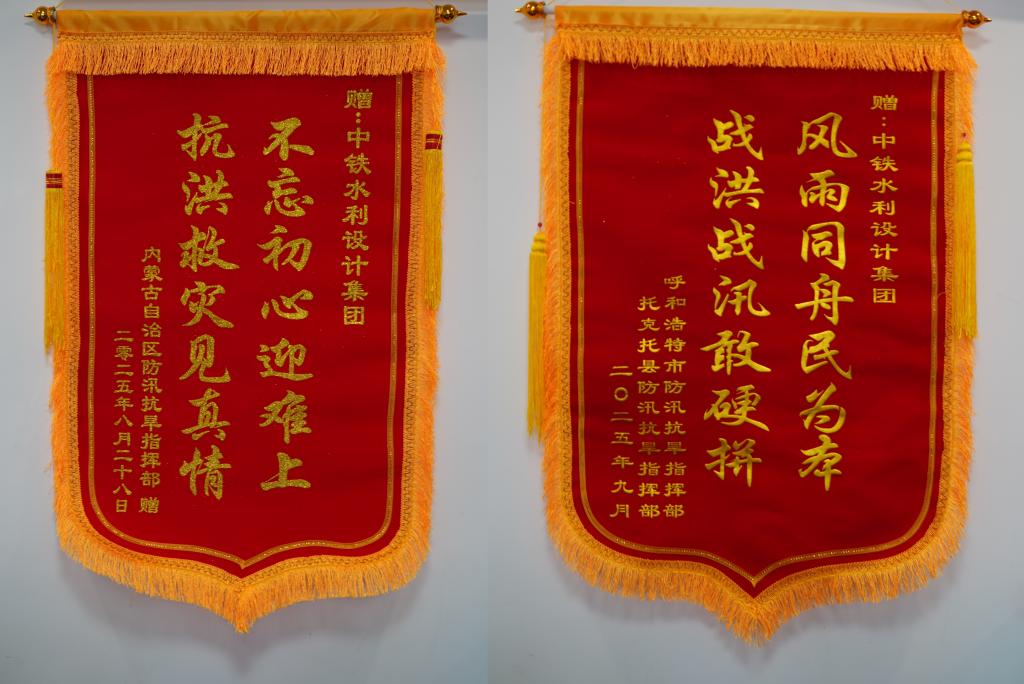 赠：中铁水利设计集团
不忘初心迎难上
抗洪救灾见真情
内蒙古自治区防汛抗旱指挥部 赠
二零二五年八月二十八日
赠：中铁水利设计集团
风雨同舟民为本
战洪战汛敢硬拼
呼和浩特市防汛抗旱指挥部
托克托县防汛抗旱指挥部
二〇二五年九月